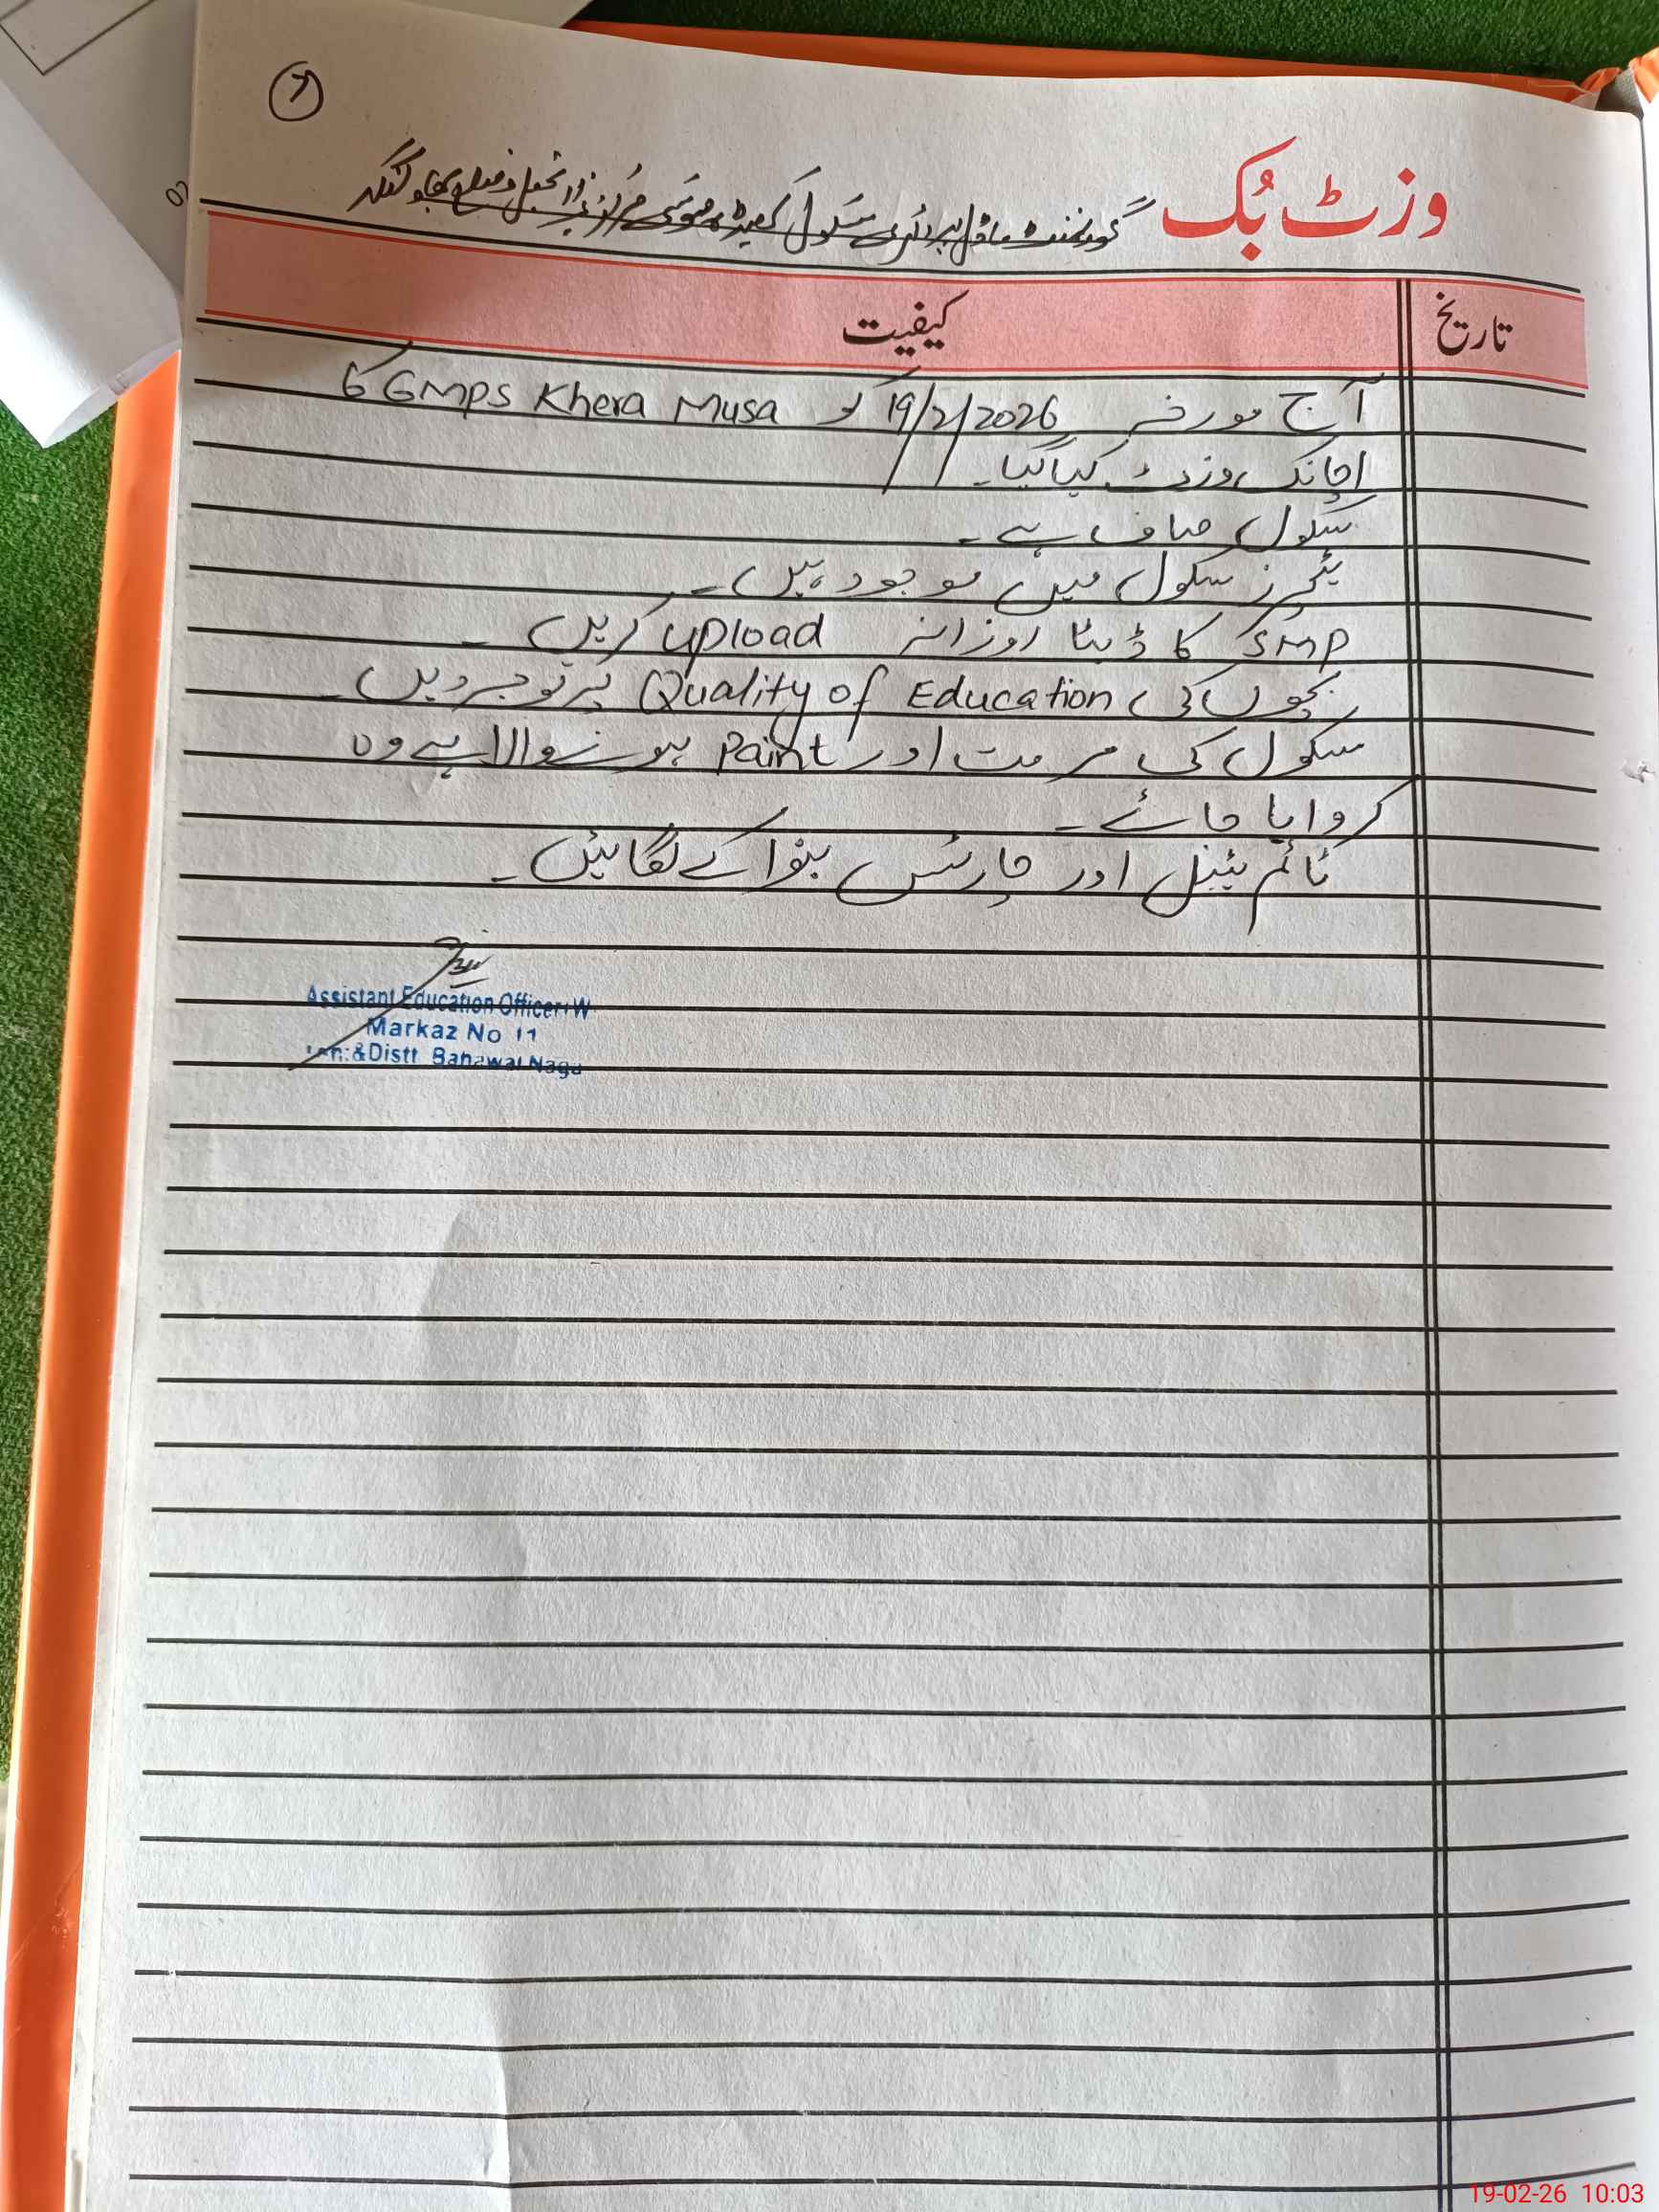 وزٹ بُک گورنمنٹ ماڈل پرائمری سکول کھیڑہ موسیٰ مرکز تحصیل و ضلع بہاولنگر
تاریخ کیفیت
آج مورخہ 19/2/2026 کو GMPS Khera Musa کا
اچانک وزٹ کیا گیا۔
سکول صاف ہے۔
ٹیچرز سکول میں موجود ہیں۔
SMP کا ڈیٹا روزانہ upload کریں۔
بچوں کی Quality of Education پر توجہ دیں۔
سکول کی مرمت اور Paint ہونے والا ہے وہ
کروایا جائے۔
ٹائم ٹیبل اور چارٹس بنوا کے لگائیں۔
Assistant Education Officer W
Markaz No 11
&Distt Bahawal Naga
19-02-26 10:03